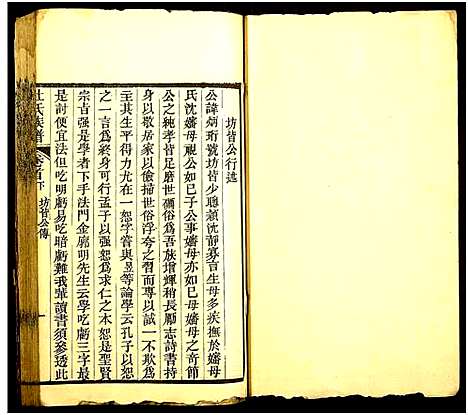 坊皆公行述
公諱炳珩號坊皆少聰穎沈靜寡言生母多疾撫於嬸母
氏沈嬸母視公如己子公事嬸母亦如己母嬸母之奇節
公之純孝皆足磨世礪俗爲吾族增輝稍長勵志詩書持
身以敬居家以儉掃世俗浮夸之習而專以誠一不欺爲
主其生平得力尤在一恕字嘗與昱等論學云孔子以恕
之一言爲終身可行孟子以强恕爲求仁之本恕是聖賢
宗旨强是學者下手法門金廓明先生云學吃虧三字最
是討便宜法但吃明虧易吃暗虧難我輩讀書須參透此
杜氏族譜
卷首下
坊皆公傳
一